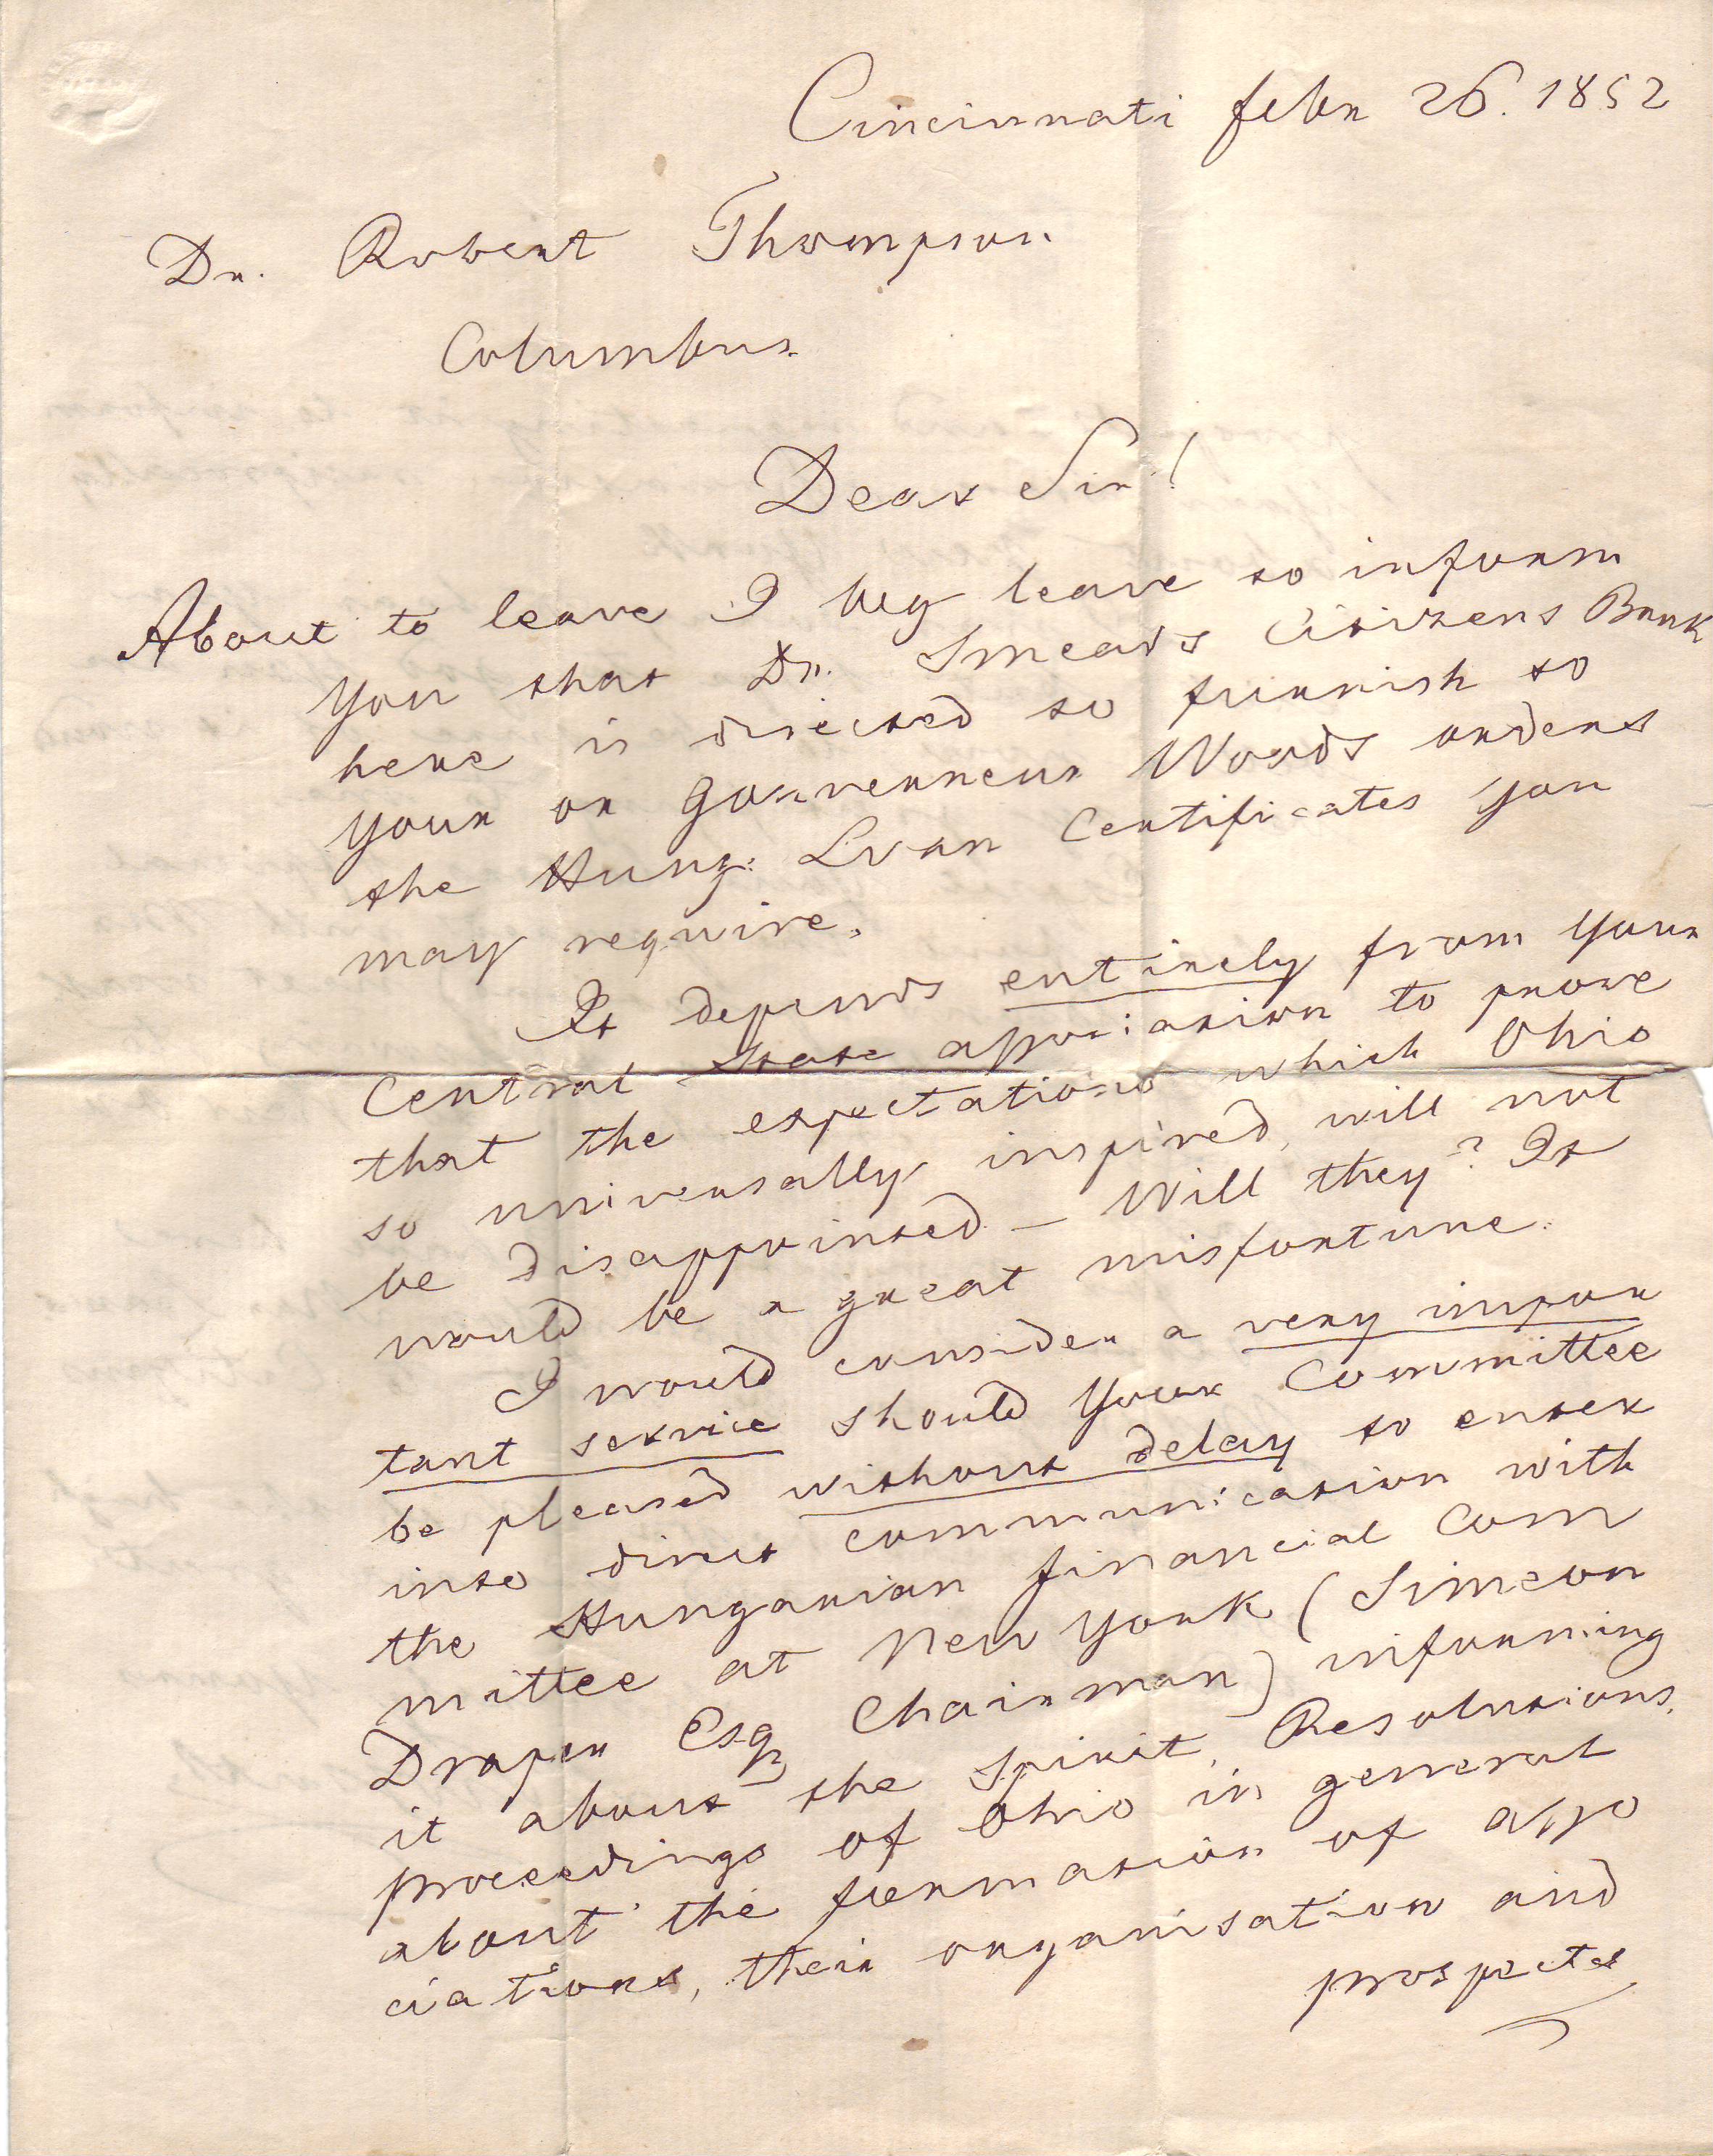 Cincinnati febr 26. 1852
Dr. Robert Thompson
Columbus.
Dear Sir!
About to leave I beg leave to inform
you that Dr. Smeads Citizens Bank
here is directed to furnish to
your or gouverneur Woods orders
the Hung: Loan Certificates you
may require.
It depends entirely from your
Central State association to prove
that the expectations which Ohio
so universally inspired, will not
be disappointed – Will they? It
would be a great misfortune.
I would consider a very impor
tant service should your Committee
be pleased without delay to enter
into direct communication with
the Hungarian financial Com
mittee at New York (Simeon
Draper Esq Chairman) informing
it about the Spirit, Resolutions,
proceedings of Ohio in general
about the formation of asso
ciations, their organisation and
prospects